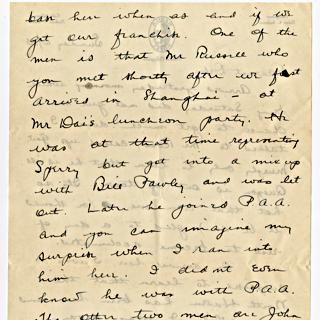 ban here when as and if we
get our franchise. One of the
men is that Mr Russell who
you met shortly after we first
arrived in Shanghai - at
Mr Dai's luncheon party. He
was at that time representing
Sperry but got into a mix up
with Bill Pawley and was let
out. Later he joined P.A.A.
and you can imagine my
surprise when I ran into
him here. I didn't even
know he was with P.A.A.
The other two men are John